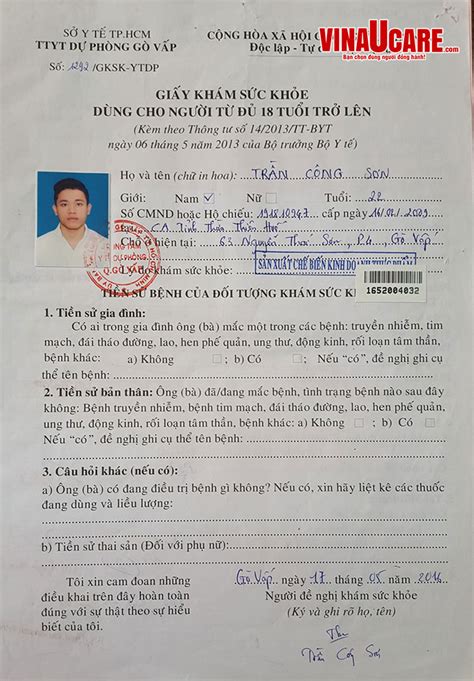 VINAUCARE.COM
Bạn chọn đúng người đồng hành!
SỞ Y TẾ TP.HCM
TTYT DỰ PHÒNG GÒ VẤP
Số: 1292/GKSK-YTDP
CỘNG HÒA XÃ HỘI
Độc lập - Tự
GIẤY KHÁM SỨC KHỎE
DÙNG CHO NGƯỜI TỪ ĐỦ 18 TUỔI TRỞ LÊN
(Kèm theo Thông tư số 14/2013/TT-BYT
ngày 06 tháng 5 năm 2013 của Bộ trưởng Bộ Y tế)
Họ và tên (chữ in hoa): TRẦN CÔNG SƠN
Giới: Nam ☑ Nữ □ Tuổi: 22
Số CMND hoặc Hộ chiếu: cấp ngày
CA Tỉnh Thừa Thiên Huế
Chỗ ở hiện tại: 63 Nguyễn Thái Sơn, P4, Gò Vấp
Lý do khám sức khỏe: SẢN XUẤT CHẾ BIẾN KINH DOANH THỰC PHẨM
1652004032
TIỀN SỬ BỆNH CỦA ĐỐI TƯỢNG KHÁM SỨC
1. Tiền sử gia đình:
Có ai trong gia đình ông (bà) mắc một trong các bệnh: truyền nhiễm, tim
mạch, đái tháo đường, lao, hen phế quản, ung thư, động kinh, rối loạn tâm thần,
bệnh khác: a) Không □ ; b) Có □ Nếu “có”, đề nghị ghi cụ
thể tên bệnh:
2. Tiền sử bản thân: Ông (bà) đã/đang mắc bệnh, tình trạng bệnh nào sau đây
không: Bệnh truyền nhiễm, bệnh tim mạch, đái tháo đường, lao, hen phế quản,
ung thư, động kinh, rối loạn tâm thần, bệnh khác: a) Không □ b) Có □
Nếu “có”, đề nghị ghi cụ thể tên bệnh:
3. Câu hỏi khác (nếu có):
a) Ông (bà) có đang điều trị bệnh gì không? Nếu có, xin hãy liệt kê các thuốc
đang dùng và liều lượng:
b) Tiền sử thai sản (Đối với phụ nữ):
Tôi xin cam đoan những
điều khai trên đây hoàn toàn
đúng với sự thật theo sự hiểu
biết của tôi.
Gò Vấp, ngày 17 tháng 05 năm 2016
Người đề nghị khám sức khỏe
(Ký và ghi rõ họ, tên)